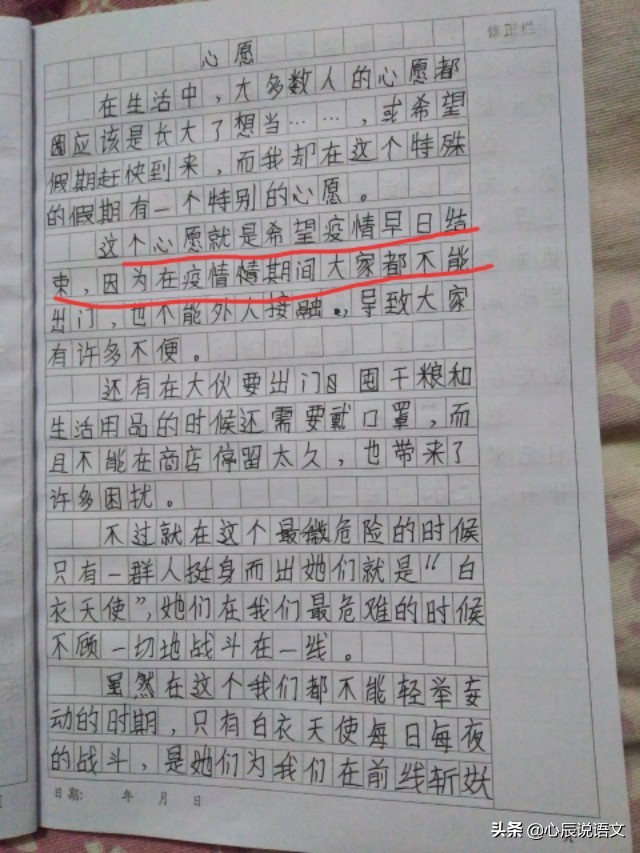 修正栏
心愿
在生活中，大多数人的心愿都
应该是长大了想当……，或希望
假期赶快到来，而我却在这个特殊
的假期有一个特别的心愿。
这个心愿就是希望疫情早日结
束，因为在疫情情期间大家都不能
出门，也不能外人接融，导致大家
有许多不便。
还有在大伙要出门囤干粮和
生活用品的时候还需要戴口罩，而
且不能在商店停留太久，也带来了
许多困扰。
不过就在这个最微危险的时候
只有一群人挺身而出她们就是“白
衣天使”，她们在我们最危难的时候
不顾一切地战斗在一线。
虽然在这个我们都不能轻举妄
动的时期，只有白衣天使每日每夜
的战斗，是她们为我们在前线斩妖
日期： 年 月 日
头条 @心辰说语文